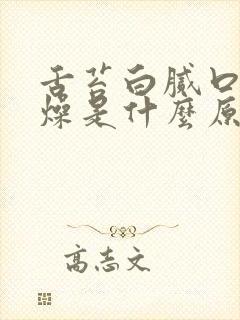 舌苔白腻口
燥是什麼原
高志文